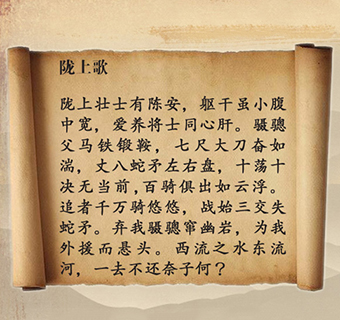 陇上歌
陇上壮士有陈安，躯干虽小腹
中宽，爱养将士同心肝。骣骢
父马铁锻鞍，七尺大刀奋如
湍，丈八蛇矛左右盘，十荡十
决无当前，百骑俱出如云浮。
追者千万骑悠悠，战始三交失
蛇矛。弃我骣骢窜幽岩，为我
外援而悬头。西流之水东流
河，一去不还奈子何？